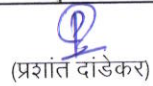 (प्रशांत दांडेकर)